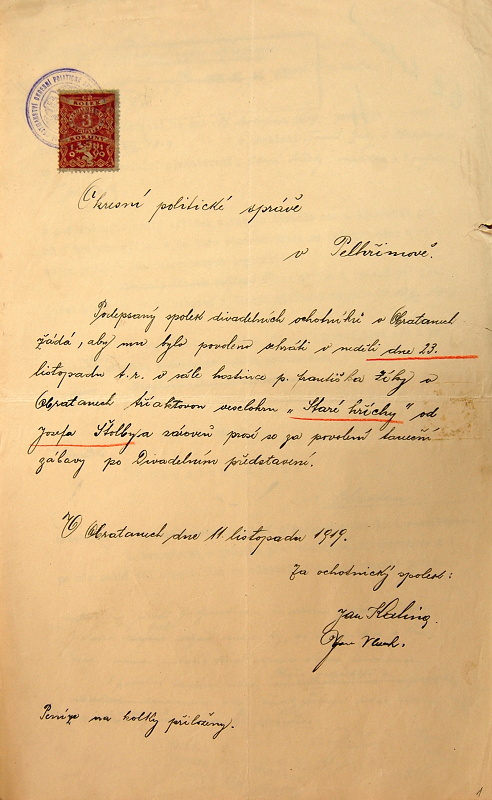 KOLEK
3
KORUNY
1919
Okresní politické správě
v Pelhřimově.
Podepsaný spolek divadelních ochotníků v Obratanech
žádá, aby mu bylo povoleno sehráti v neděli dne 23.
listopadu t. r. v sále hostince p. Františka Žiky v
Obratanech tříaktovou veselohru „Staré hříchy" od
Josefa Štolby a zároveň prosí se za povolení taneční
zábavy po Divadelním představení.
V Obratanech dne 11. listopadu 1919.
Za ochotnický spolek:
Jan
Jan
Peníze na kolky přiloženy.
1